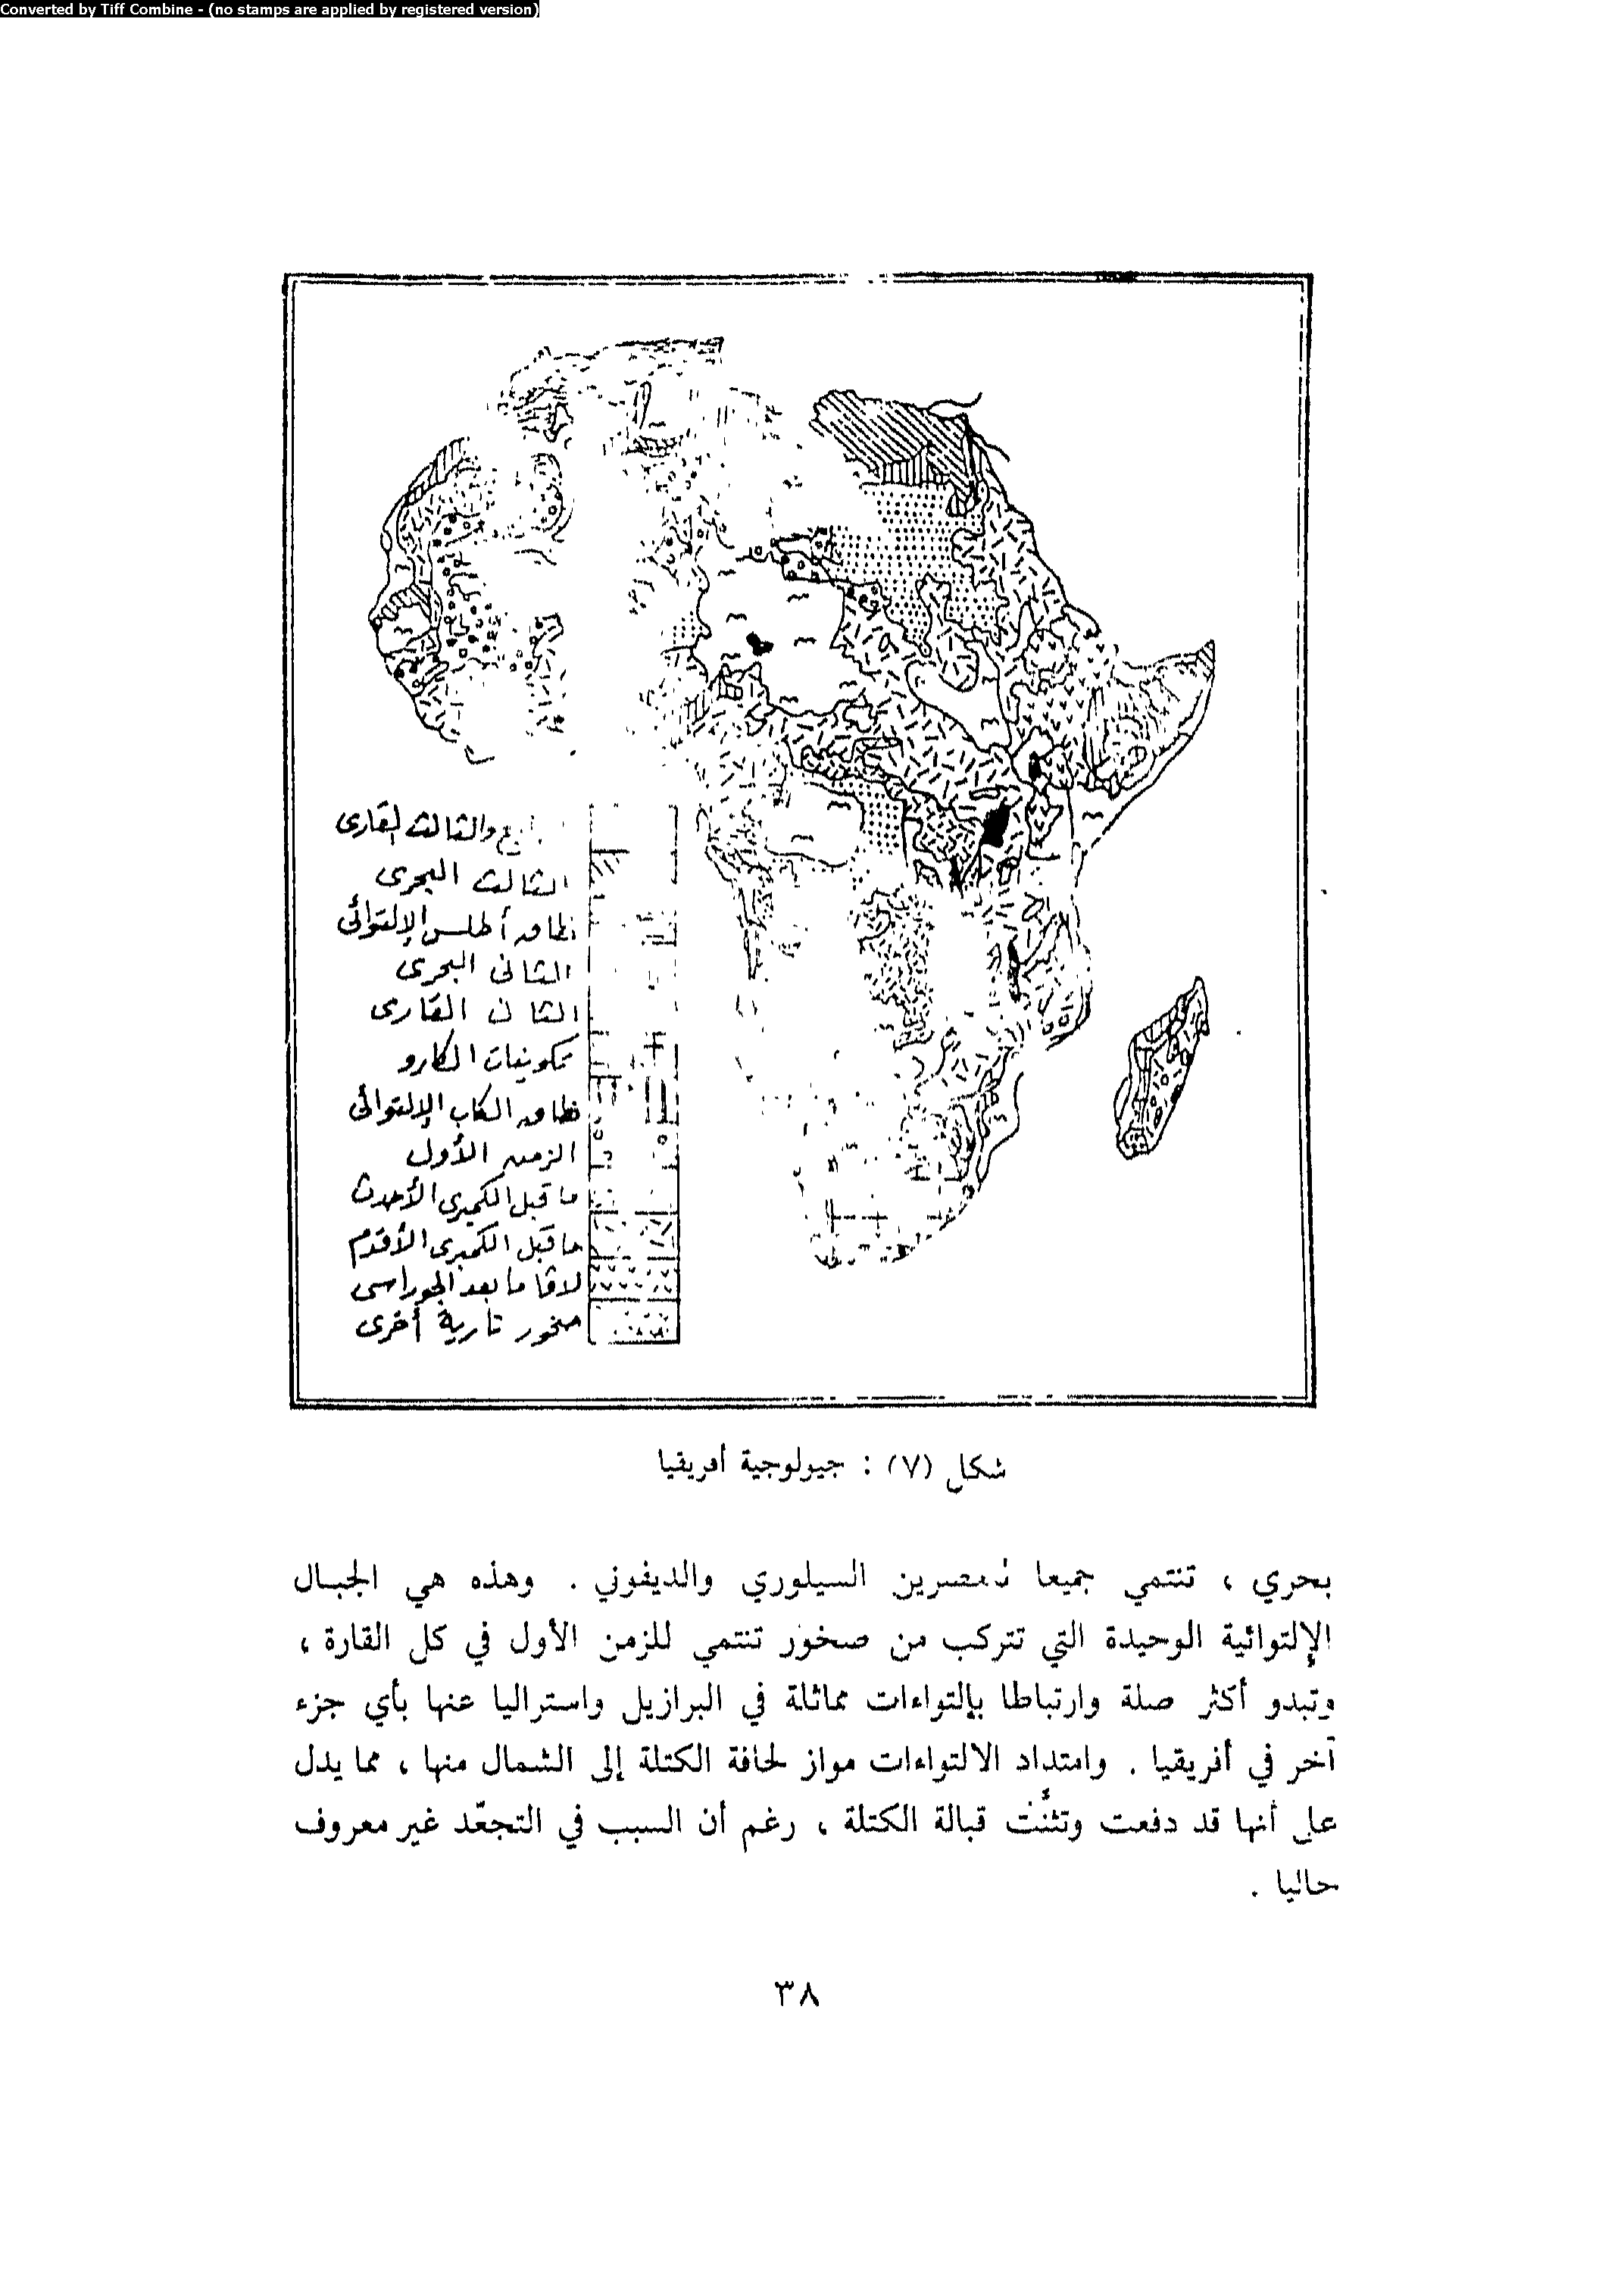 Converted by Tiff Combine - (no stamps are applied by registered version)
والثالث القارى
الثالث البحرى
نطاق أطلس الإلتوائى
الثانى البحرى
الثانى القارى
تكوينات الكارو
نطاق الكاب الإلتوائى
الزمن الأول
ما قبل الكمبرى الأحدث
ما قبل الكمبرى الأقدم
لافا ما بعد الجوراسى
صخور نارية أخرى
شكل (٧) : جيولوجية أفريقيا
بحري ، تنتمي جميعا لعصرين السيلوري والديفوني . وهذه هي الجبال
الإلتوائية الوحيدة التي تتركب من صخور تنتمي للزمن الأول في كل القارة ،
وتبدو أكثر صلة وارتباطا بإلتواءات مماثلة في البرازيل واستراليا عنها بأي جزء
آخر في أفريقيا . وامتداد الالتواءات مواز لحافة الكتلة إلى الشمال منها ، مما يدل
على أنها قد دفعت وتثنَّت قبالة الكتلة ، رغم أن السبب في التجعّد غير معروف
حاليا .
٣٨